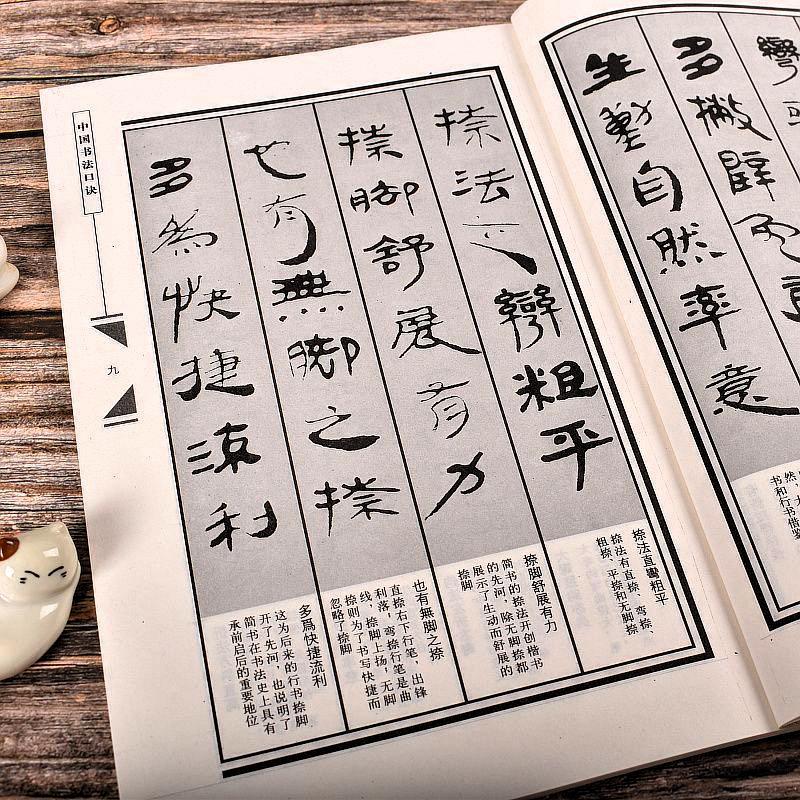 彎
多撇
生動自然率意
书和行书借鉴
捺法直彎粗平
捺脚舒展有力
也有無脚之捺
多爲快捷流利
捺法直彎粗平
捺法有直捺、弯捺、
粗捺、平捺和无脚捺
捺脚舒展有力
简书的捺法开创楷书
的先河，除无脚捺都
展示了生动而舒展的
捺脚
也有無脚之捺
直捺右下行笔，出锋
利落，弯捺行笔是曲
线，捺脚上扬，无脚
捺则为了书写快捷而
忽略了捺脚
多爲快捷流利
这为后来的行书捺脚
开了先河，也说明了
简书在书法史上具有
承前启后的重要地位
中国书法口诀
九